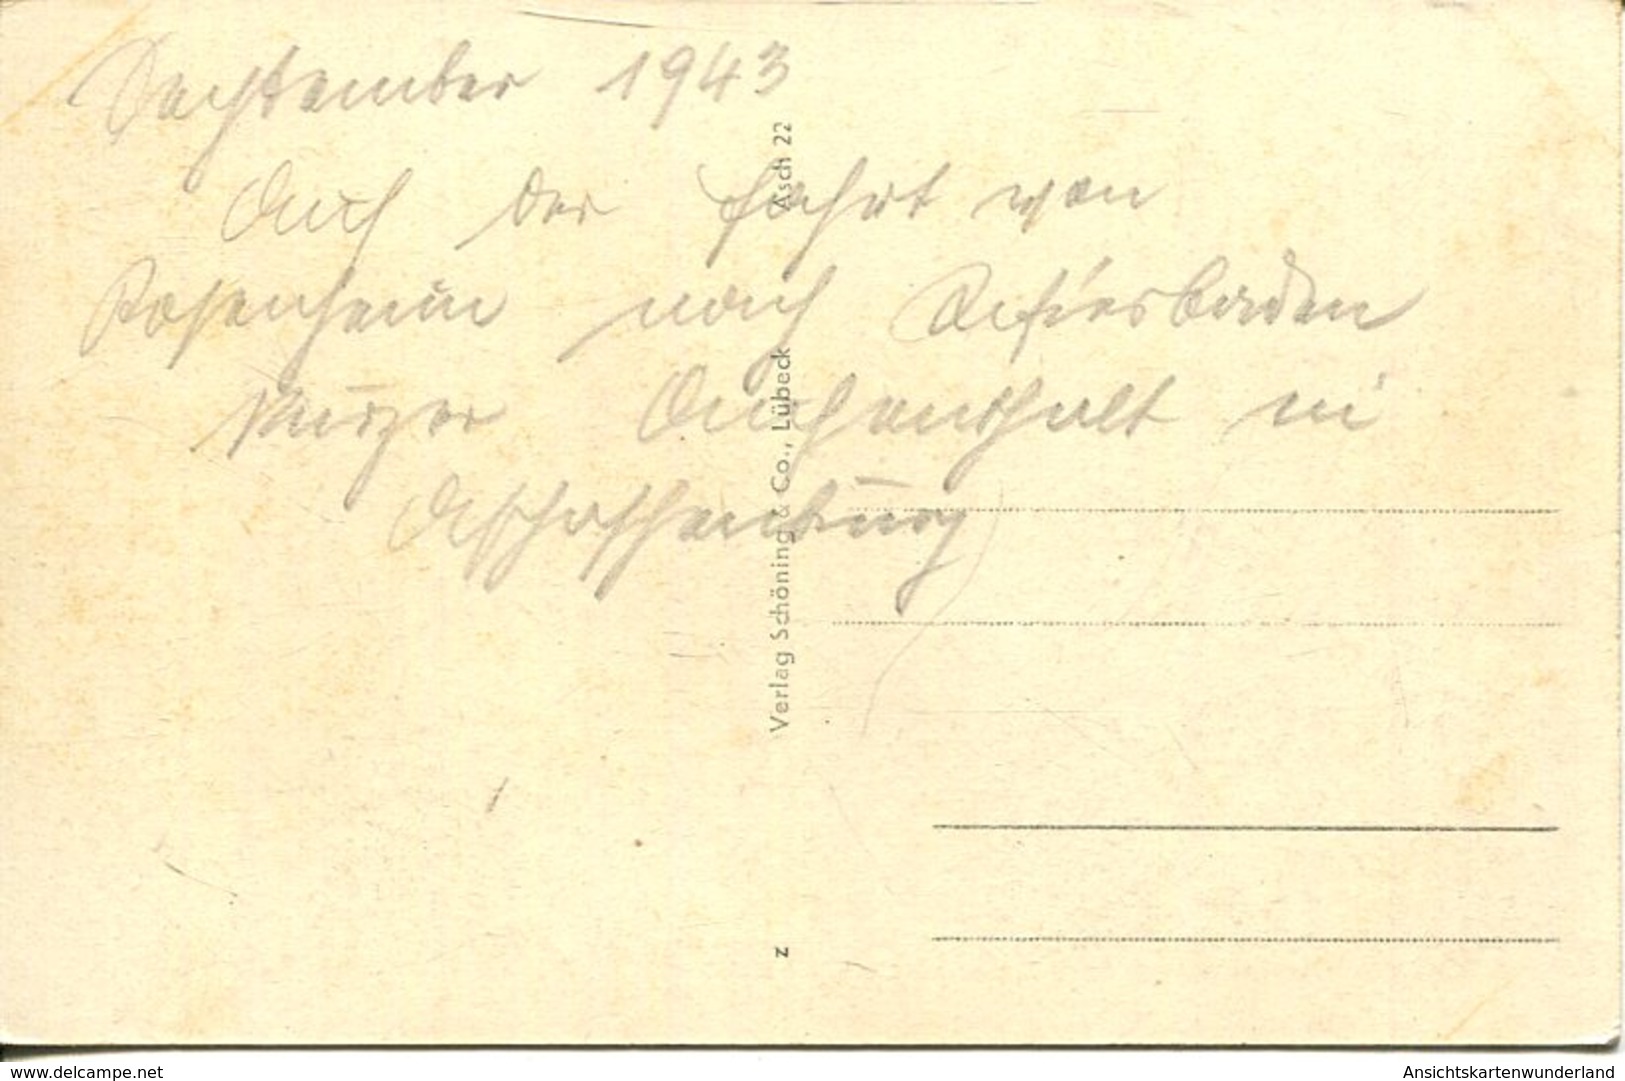 September 1943
Auf der Fahrt von
Rosenheim nach Wiesbaden
kurzer Aufenthalt in
Aschaffenburg
Verlag Schöning & Co., Lübeck Asch 22
z
delcampe.net
Ansichtskartenwunderland